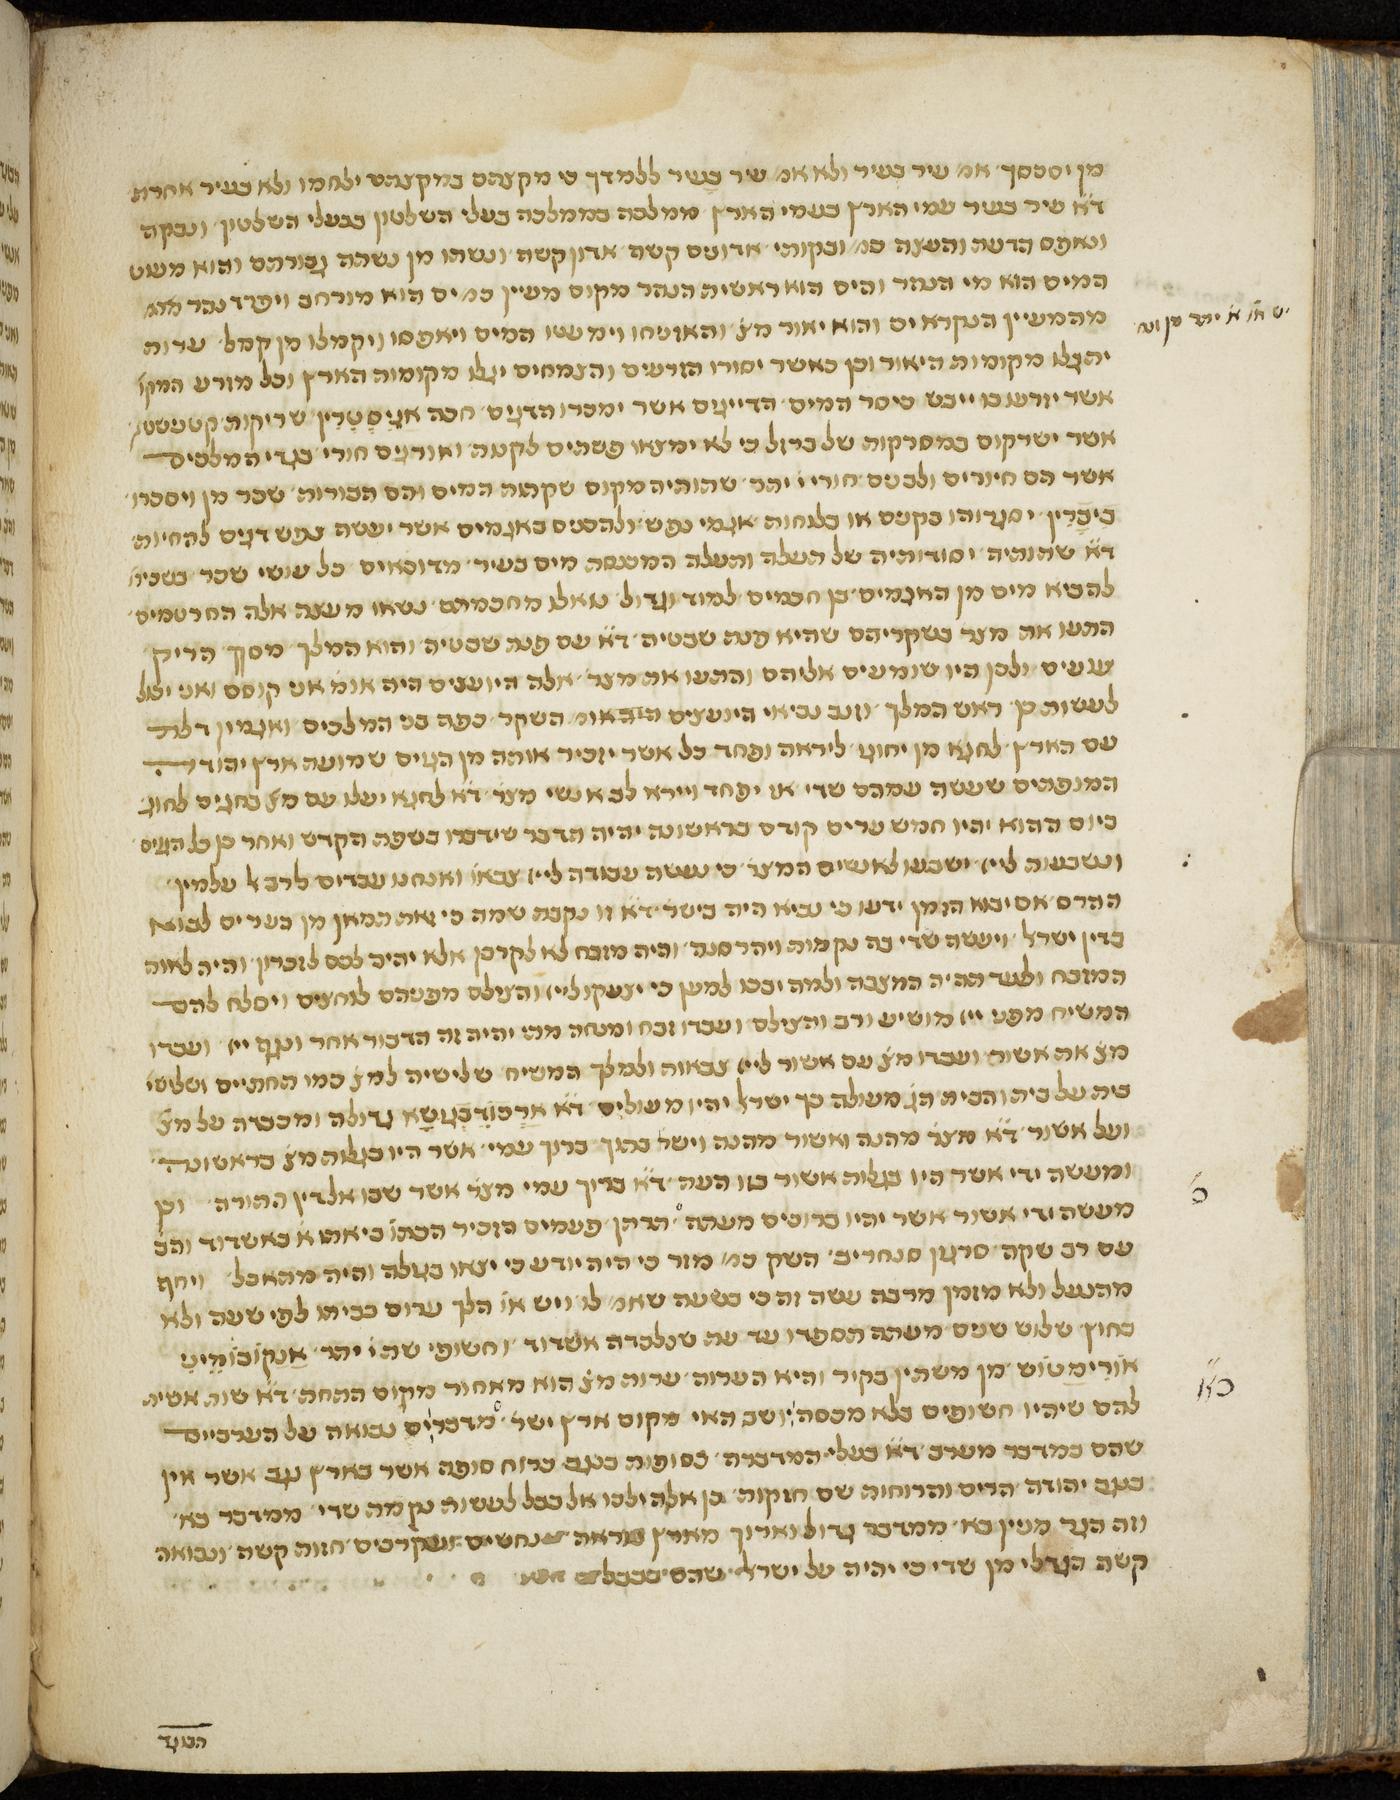 מן יסכסך אמ׳ עיר בעיר ולא אמ׳ עיר בעיר ללמדך כי מקצתם במקצתם ילחמו ולא בעיר אחרת
ד̇א עיר בעיר עמי הארץ בעמי הארץ ממלכה בממלכה בעלי השלטון בבעלי השלטון ונבקה
ונאפס הדעה והעצה כמ׳ ובקותי אדונים קשה אדון קשה ונשתו מן נשתה גבורתם והוא
המים הוא מי הנהר והים הוא ראשית הנהר מקום מעיין כמ׳ ים הוא מורחב ויפרד נהר
מהמעיין הנקרא ים והוא יאור מצ׳ והאזניחו וימעטו המים ויאפסו ויקמלו מן קמל ערות
יתגלו מקומות היאור וכן כאשר יסורו הזרעים והצמחים יגלו מקומות הארץ וכל מזרע המקו׳
אשר יזרעו בו ייבש כיסר המים הדייגים אשר ימכרו הדגים חכה שריקות
אשר יסרקום במסרקות של ברזל כי לא ימצאו פשתים לקנות ואורגים חורי בגדי המלכים
אשר הם חיורים ולבנים חורי יתר שתותיה מקום שקתות המים והם הבורות שכר מן ויסכרו
ביברין יסגרוהו אגמי נפש ולהכנים באגמים אשר יעשה נפש דגים להחיות
ד̇א שתותיה יסודותיה של העלה והעלה המכנסת מים בעיר מדוכאים כל עושי שכר בשכיר
להביא מים מן האגמים בן חכמים למוד וגדול נואלו מחכמתם נשאו מעצה אלה החרטמים
התעו את מצר בשקריהם שהיא פנת שבטיה ד̇א עם פנת שבטיה והוא המלך מסך הריק
עועים ולכן היו שומעים אליהם והתעו את מצר אלה היועצים היה אומ׳ אני קוסם ואני יכול
לעשות כן ראש המלך וזנב נביאי היועצים השקר כפה בני המלכים ואגמון דלת
עם הארץ לחגא מן יחוגו ליראה ופחד כל אשר יזכיר אותה מן הגוים שמועת ארץ יהודה
המנפתים שעשה עמהם שדי אז יפחד ויירא לב אנשי מצר ד̇א לחגא יעלו עם מצ׳ בחגים לחוג
ביום ההוא יהיו חמש ערים קודם בראשונה יהיה הדבר שידברו בשפת הקדש ואחר כן כל הגוים
ונשבעות לייי ישבעו לאנשים המצר׳ כי נעשה עבודה לייי צבאו׳ ואנחנו עבדים לרב על עלמין
ההרס אם יבוא הזמן ידעו כי נביא היה בישר׳ ד̇א זו נקבת שמה כי זאת תמאן מן הערים לבוא
בדין ישראל ויעשה שדי בה נקמות ויהרסנה והיה מזבח לא לקרבן אלא יהיה לכם לזכרון והיה לאות
המזבח ולעד תהיה המצבה ולמה יבנו למען כי יצעקו לייי והצילם מפניהם לוחצים וישלח להם
המשיח מפני ייי מושיע ורב והצילם ועבדו זבח ומנחה מהו יהיה זה הדבור אחר ונגף ייי ועבדו
מצ׳ את אשור ועבדו מצ׳ עם אשור לייי צבאות ולמלך המשיח שלישיה למצ׳ כמו תחתיים ושלישי׳
בית על בית והבית הג׳ מעולה כך ישראל יהיו מעולים ד̇א גדולה ומכברת על מצ׳
ועל אשור ד̇א מצר מהנה ואשור מהנה וישר׳ בתוך ברוך עמי אשר היו בגלות מצ׳ בראשונה
ומעשה ידי אשר היו בגלות אשור בזו העת ד̇א בריך עמי מצר אשר שבו אל דין התורה וכן
מעשה ידי אשור אשר יהיו ברוכים מעתה תרתן פעמים הזכיר הכתו׳ ביאתו א̇ באשדוד והב̇
עם רב שקה סרגון סנחריב השק כמ׳ מזר כי היה יודע כי יצאו בגולה והיה מתאבל ויחף
מהנעל ולא מזמן מרבה עשה זה כי בשעה שאמ׳ לו ויש או׳ הלך ערום בביתו לפי שעה ולא
בחוץ שלוש שנים מעתה תספרו עד עת שנלכדה אשדוד וחשופי שת ו̇ יתר
מן משתין בקיר והיא הערוה ערות מצ׳ הוא מאחור מקום התחת ד̇א שות אשית
להם שיהיו חשופים בלא מכסה יושב האי מקום ארץ ישר׳ מדבר ים נבואה על הערביים
שהם במדבר מערב ד̇א בעלי המדברה כסופות בנגב ברוח סופה אשר בארץ נגב אשר אין
בנגב יהודה הרים והרוחות שם חזקות כן אלה ילכו אל בבל לעשות נקמה שדי ממדבר בא׳
וזה הגד מניין בא׳ ממדבר גדול וארוך מארץ נוראה נחשים ועקרבים חזות קשה ונבואה
קשה הגד לי מן שדי כי יהיה על ישראל שהם בבבל
הבוגד